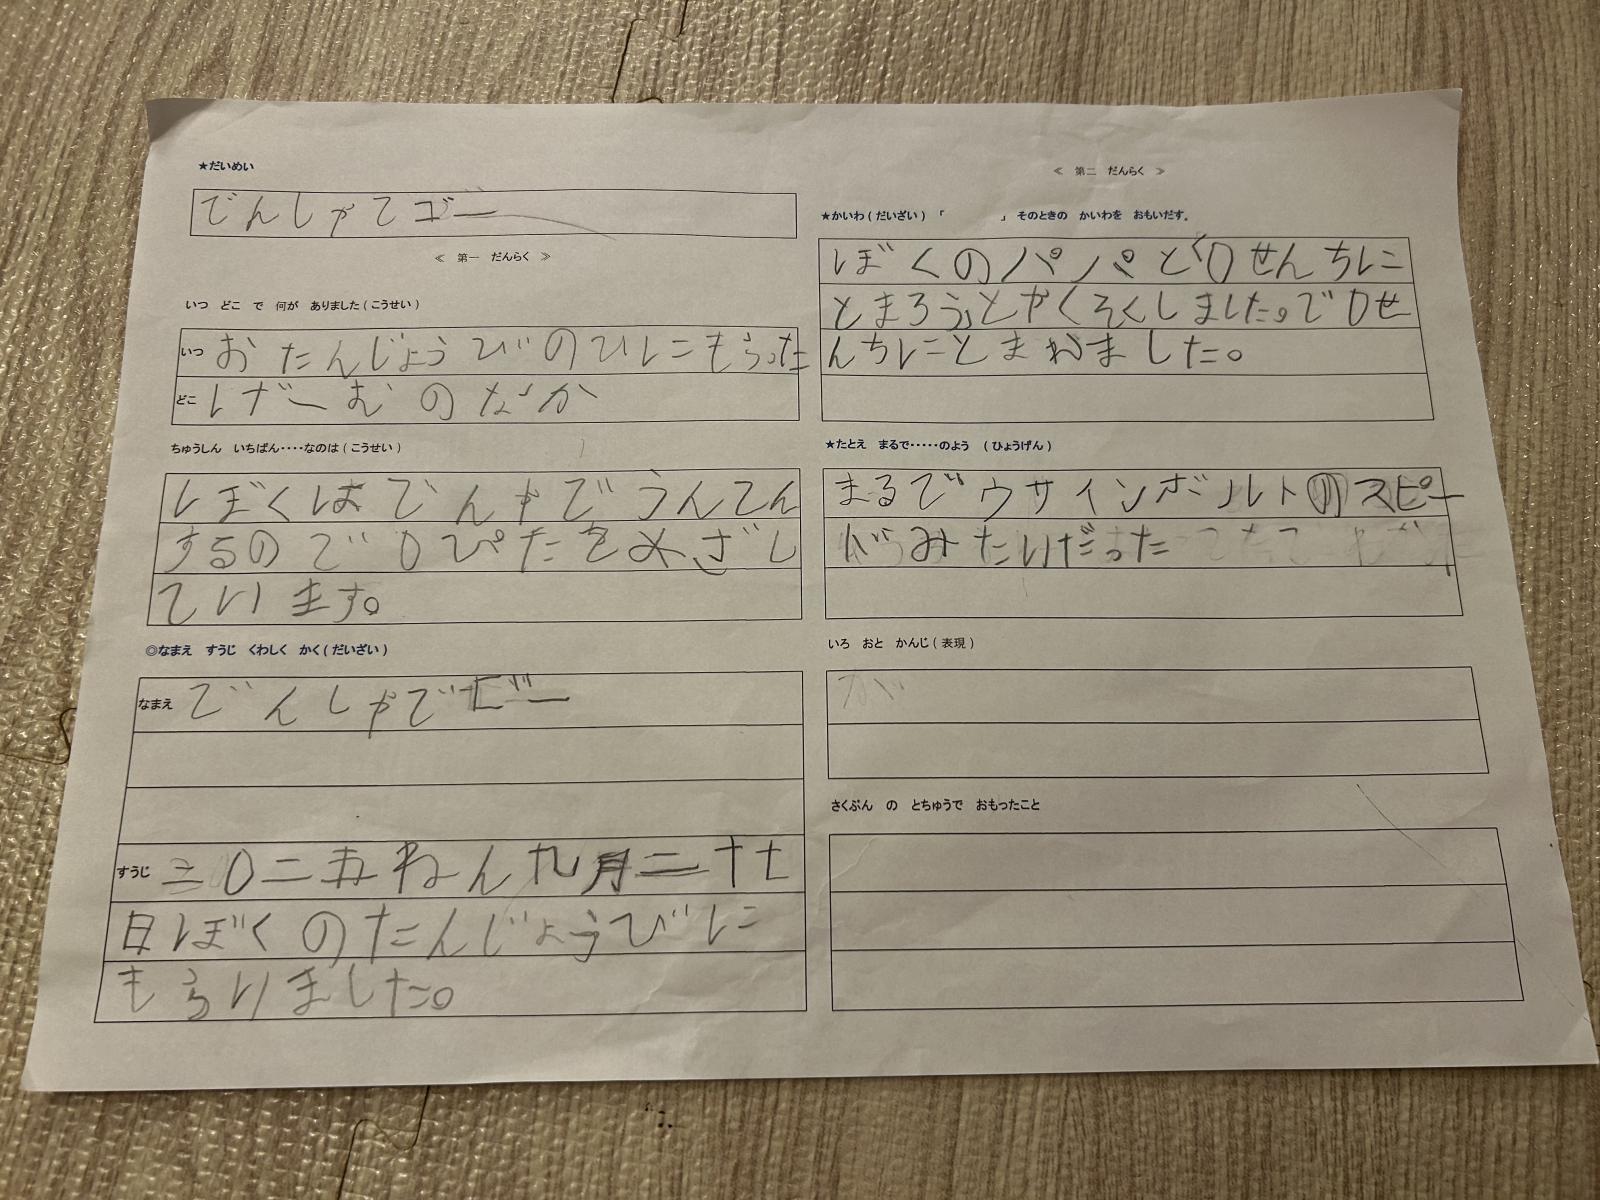 ★だいめい
でんしゃてゴー
≪ 第一 だんらく ≫
いつ どこ で 何が ありました(こうせい)
いつ おたんじょうびのひにもらった
どこ げーむのなか
ちゅうしん いちばん・・・・なのは(こうせい)
ぼくはでんゃでうんてん
するので0ぴたをめざし
ています。
◎なまえ すうじ くわしく かく(だいざい)
なまえ でんしゃでゴー
すうじ 二〇二五ねん九月二十七
日ぼくのたんじょうびに
もらいました。
≪ 第二 だんらく ≫
★かいわ(だいざい) 「 」 そのときの かいわを おもいだす。
ぼくのパパと「0せんちに
とまろう」とやくそくしました。で0せ
んちにとまれました。
★たとえ まるで・・・・・のよう (ひょうげん)
まるでウサインボルトのスピー
ドみたいだった
いろ おと かんじ(表現)
が
さくぶん の とちゅうで おもったこと